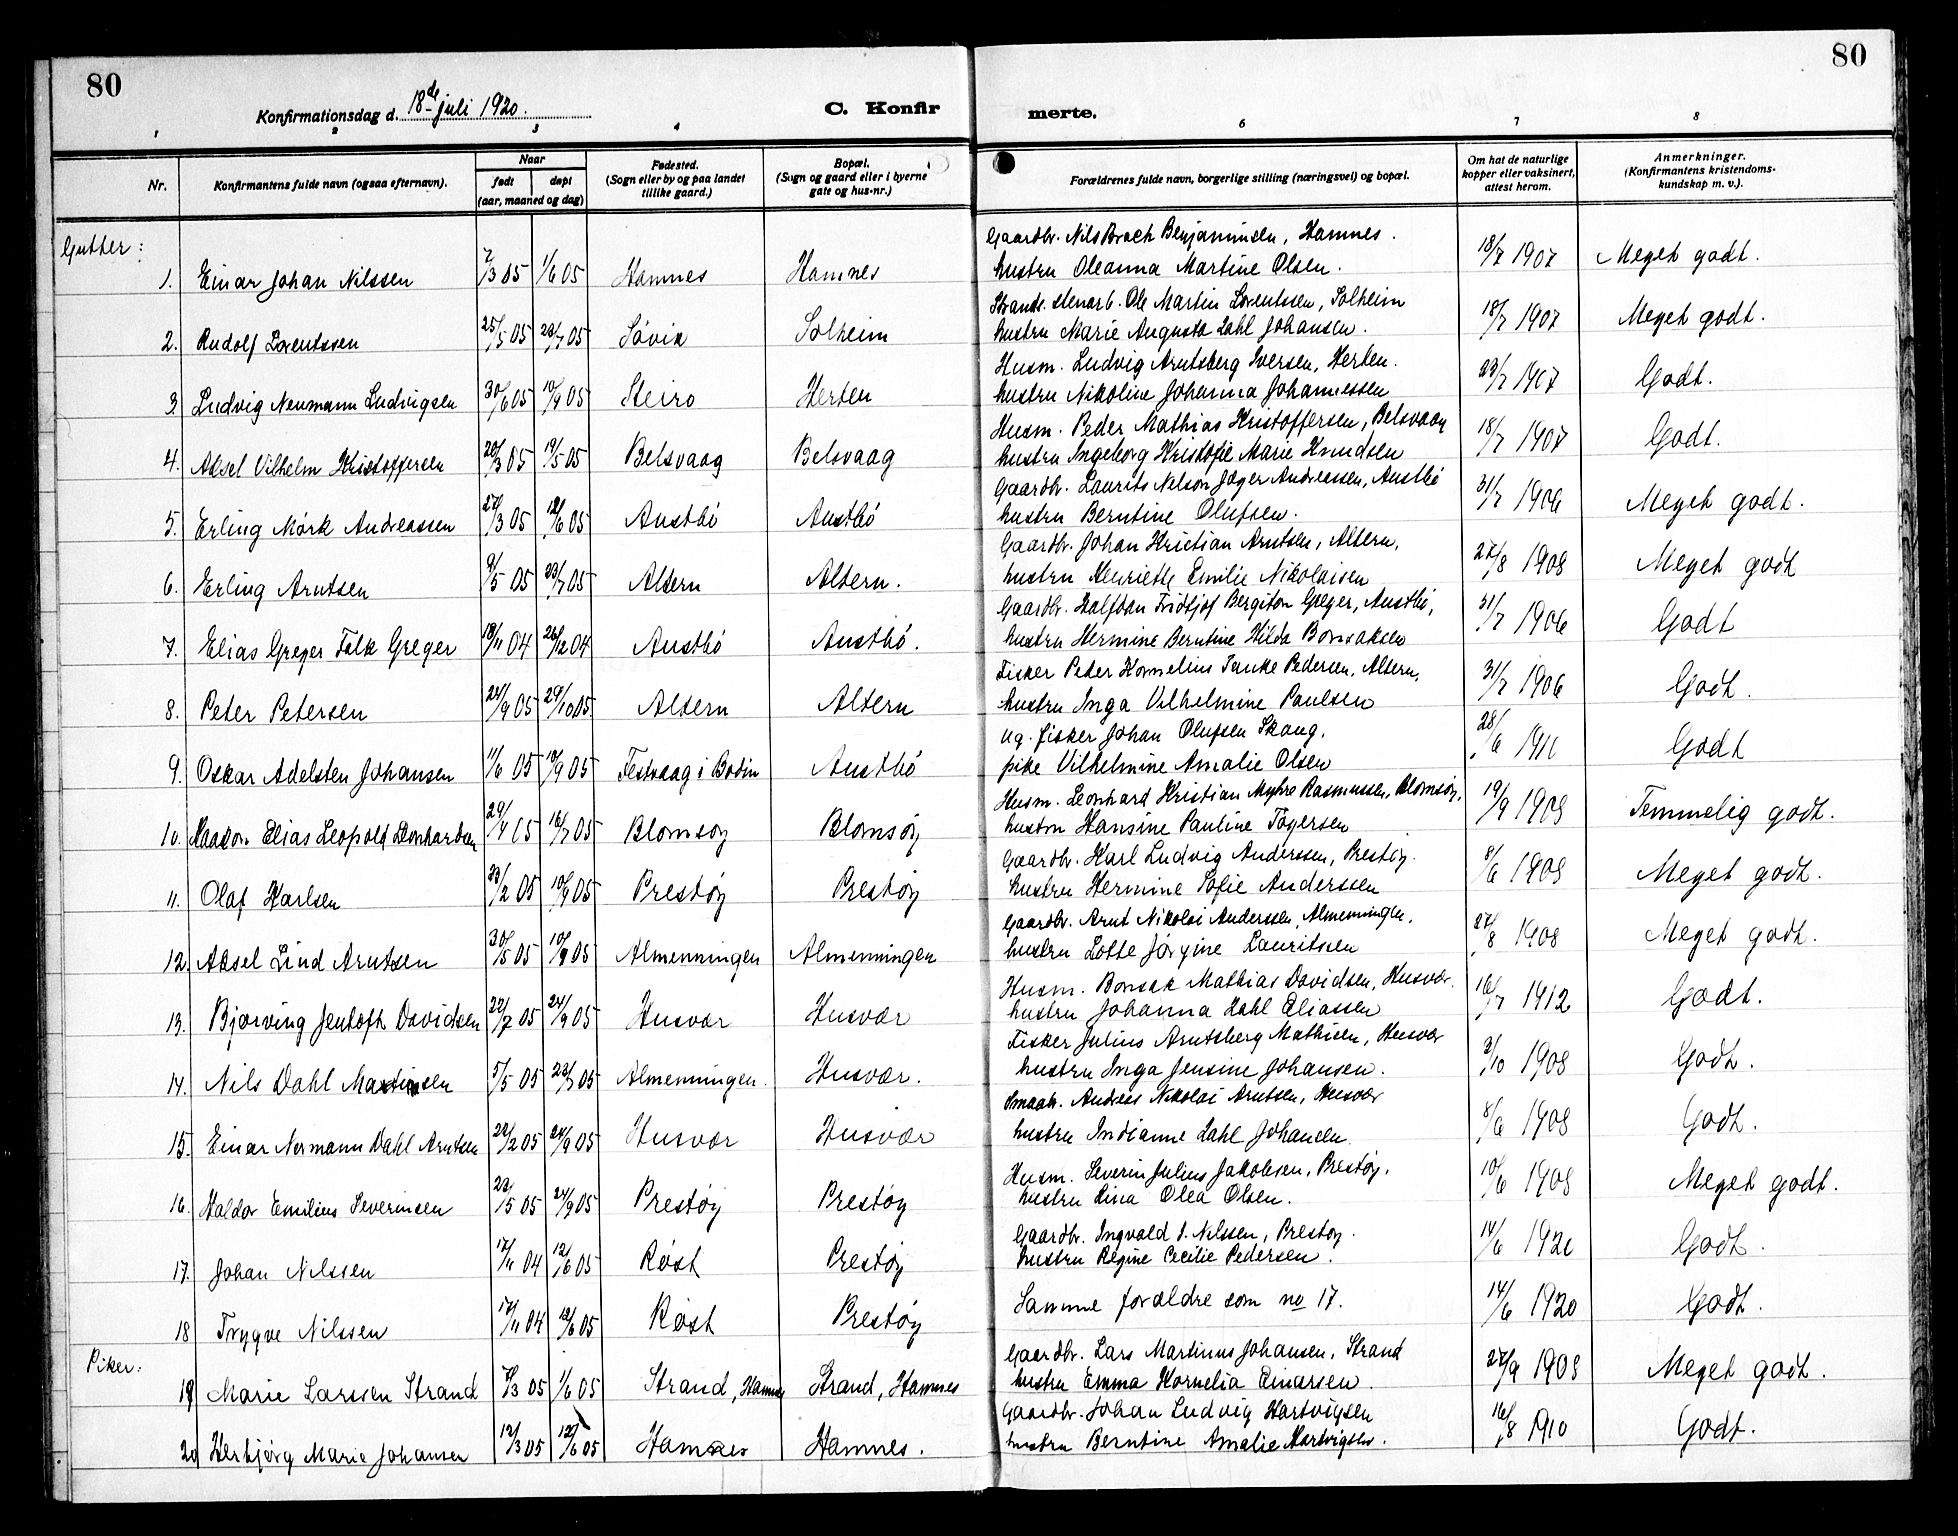 80
80
Konfirmationsdag d. 18de juli 1920.
C. Konfir
merte.
1 2 3 4 6 7 8
Nr.
Konfirmantens fulde navn (ogsaa efternavn).
Naar
født
døpt
(aar, maaned og dag)
Fødested.
(Sogn eller by og paa landet
tillike gaard.)
Bopæl.
(Sogn og gaard eller i byerne
gate og hus-nr.)
Forældrenes fulde navn, borgerlige stilling (næringsvei) og bopæl.
Om hat de naturlige
kopper eller vaksinert,
attest herom.
Anmerkninger.
(Konfirmantens kristendoms-
kundskap m. v.).
Gutter:
Gaardbr. Nils Brock Benjaminsen, Hamnes.
1. Einar Johan Nilssen 7/3 05 1/6 05 Hamnes Hamnes hustru Oleanna Martine Olsen. 18/7 1907 Meget godt.
Strands. stenarb. Ole Martin Lorentssen, Solheim
2. Rudolf Lorentssen 25/5 05 23/7 05 Søvik Solheim hustru Marie Augusta Dahl Johansen. 18/7 1907 Meget godt.
Husm. Ludvig Arntsberg Iversen, Herten.
3. Ludvig Neumann Ludvigsen 30/6 05 10/9 05 Steiro Herten hustru Nikoline Johanna Johannessen 23/7 1907 Godt.
Husm. Peder Mathias Kristoffersen, Belsvaag
4. Aksel Vilhelm Kristoffersen 20/3 05 19/5 05 Belsvaag Belsvaag hustru Ingeborg Kristofie Marie Knudsen 18/7 1907 Godt.
Gaardbr. Laurits Nelson Jager Andreassen, Austbø
5. Erling Mørk Andreassen 27/3 05 12/6 05 Austbø Austbø hustru Berntine Olufsen. 31/7 1906 Meget godt.
Gaardbr. Johan Kristian Arntsen, Altern,
6. Erling Arntsen 9/5 05 23/7 05 Altern Altern. hustru Henriette Emilie Nikolaisen 27/8 1908 Meget godt
Gaardbr. Halfdan Fridtjof Bergiton Greger, Austbø,
7. Elias Greger Falk Greger 18/11 04 26/12 04 Austbø Austbø. hustru Hermine Berntine Hilda Bonsaksen 31/7 1906 Godt
Fisker Peder Kornelius Tanke Pedersen, Altern,
8. Peter Petersen 24/9 05 29/10 05. Altern Altern hustru Inga Vilhelmine Paulsen 31/7 1906 Godt.
ug. fisker Johan Olufsen Skaug.
9. Oskar Adelsten Johansen 11/6 05 10/9 05 Festvaag i Bodin Austbø pike Vilhelmine Amalie Olsen 28/6 1911 Godt
Husm. Leonhard Kristian Myhre Rasmussen, Blomsøy.
10. Haakon Elias Leopold Leonhardsen 29/4 05 16/7 05 Blomsøy Blomsøy hustru Hansine Pauline Tøgersen 19/9 1908 Temmelig godt.
Gaardbr. Karl Ludvig Anderssen, Prestøy.
11. Olaf Karlsen 23/2 05 10/9 05 Prestøy Prestøy hustru Hermine Sofie Anderssen 8/6 1908 Meget godt.
Gaardbr. Arnt Nikolai Anderssen, Almenningen,
12. Aksel Lind Arntsen 30/5 05 10/9 05 Almenningen Almenningen hustru Lotte Jørgine Lauritsen 27/8 1908 Meget godt.
Husm. Bonsak Mathias Davidsen, Husvær.
13. Bjarving Jentoft Davidsen 22/7 05 24/9 05 Husvær Husvær hustru Johanna Dahl Eliassen 16/7 1912 Godt.
Fisker Julius Arntsberg Mathisen, Husvær
14. Nils Dahl Martinsen 5/5 05 23/7 05 Almenningen. Husvær. hustru Inga Jensine Johansen. 3/10 1908 Godt.
Smaabr. Andreas Nikolai Arntsen, Husvær
15. Einar Normann Dahl Arntsen 22/2 05 24/9 05 Husvær Husvær hustru Indianne Dahl Johansen. 8/6 1908 Godt.
Husm. Severin Julius Jakobsen, Prestøy.
16. Haldor Emilius Severinsen 23/5 05 24/9 05 Prestøy Prestøy hustru Lina Olea Olsen. 10/6 1908 Meget godt.
Gaardbr. Ingvald J. Nilssen, Prestøy.
17. Johan Nilssen 17/11 04 12/6 05 Røst Prestøy hustru Regine Cecilie Pedersen. 14/6 1920 Godt.
18 Trygve Nilssen 17/11 04 12/6 05 Røst Prestøy Samme forældre som no 17. 14/6 1920 Godt.
Piker:
Gaardbr. Lars Martinus Johansen, Strand
19 Marie Larssen Strand 7/3 05 1/6 05 Strand, Hamnes Strand, Hamnes hustru Emma Kornelia Einarsen. 27/9 1908 Meget godt.
Gaardbr. Johan Ludvig Hartvigsen
20 Herbjørg Marie Johansen 12/3 05 12/6 05 Hamnes Hamnes. hustru Berntine Amalie Hartvigsen. 16/8 1910 Godt.